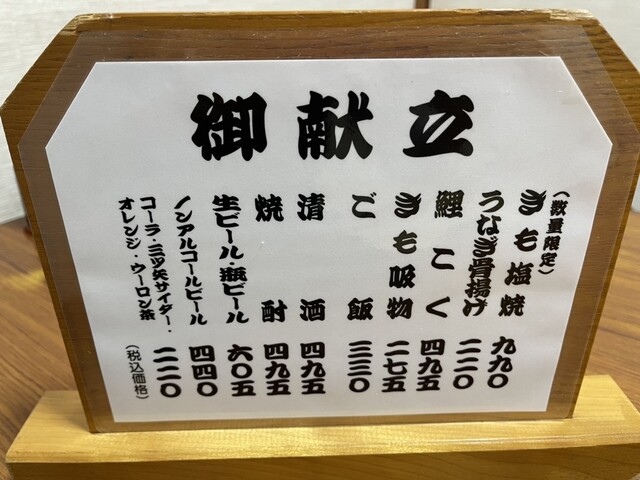 御献立
(数量限定)
きも塩焼 九九〇
うなぎ骨揚げ 二二〇
鯉こく 四九五
きも吸物 二七五
ご飯 三三〇
清酒 四九五
焼酎 四九五
生ビール・瓶ビール 六〇五
ノンアルコールビール 四四〇
コーラ・三ツ矢サイダー・
オレンジ・ウーロン茶 二二〇
(税込価格)